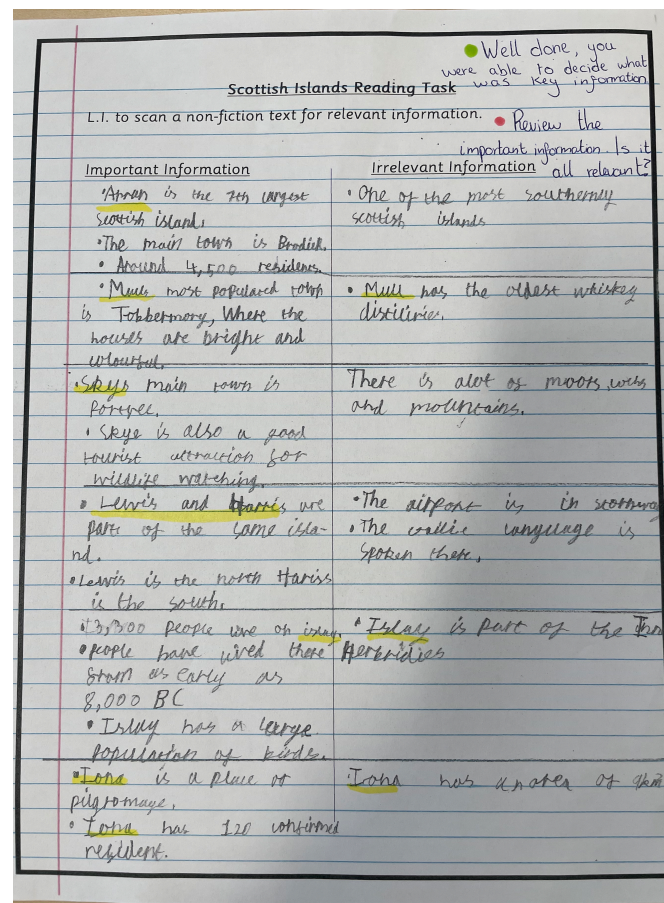 Well done, you
were able to decide what
was key information
Scottish Islands Reading Task
L.I. to scan a non-fiction text for relevant information.
Review the
important information. Is it
all relevant?
Important Information
Irrelevant Information
•Arran is the 7th largest
scottish island.
•The main town is Brodick.
• Around 4,500 residents.
• One of the most southernly
scottish islands
•Mulls most populated town
is Tobbermory, Where the
houses are bright and
colourful.
• Mull has the oldest whiskey
distiliries.
•Skys main town is
Portree.
• Skye is also a good
tourist attraction for
wildlife watching.
There is alot of moors,
and mountains.
• Lewis and Harris are
part of the same isla-
nd.
•Lewis is the north Hariss
is the south.
•The airport is in
•The language is
spoken there.
3,300 people live on islay.
•people have lived there
from as early as
8,000 BC
• Islay has a large
population of birds.
• Islay is part of the
Herbridies
•Iona is a place of
pilgromage.
• Iona has 120 confirmed
resident.
•Iona has of